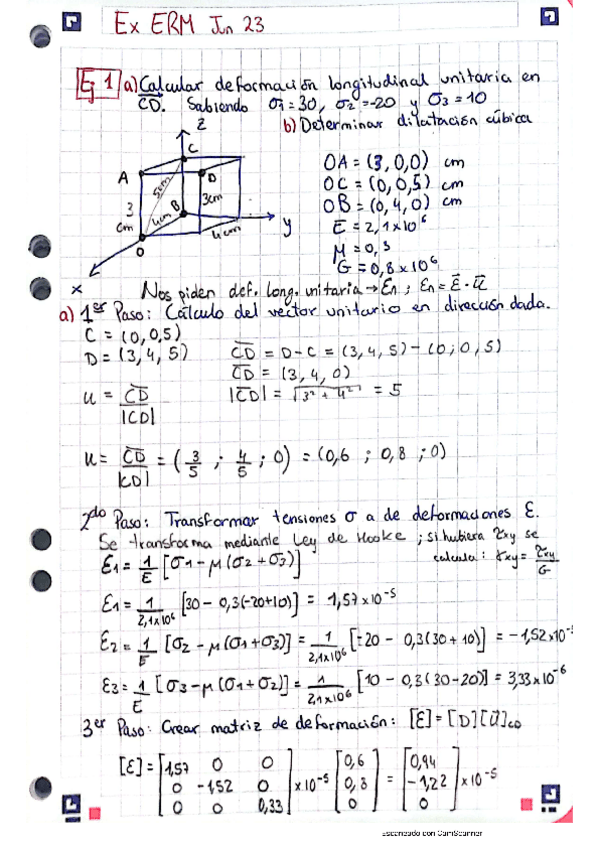 Ex ERM Jun 23
Ej 1 a) Calcular deformación longitudinal unitaria en
CD. Sabiendo σ1 = 30, σ2 = -20 y σ3 = 10
b) Determinar dilatación cúbica
z
C
A
D
5cm
3cm
3
cm
4cm
B
4cm
O
y
x
OA = (3,0,0) cm
OC = (0,0,5) cm
OB = (0,4,0) cm
E = 2,1x10⁶
μ = 0,3
G = 0,8x10⁶
Nos piden def. long. unitaria → En ; En = E · u
a) 1er Paso: Cálculo del vector unitario en dirección dada.
C = (0,0,5)
D = (3,4,5) CD = D-C = (3,4,5) - (0;0,5)
CD = (3,4,0)
u = CD/|CD| |CD| = √3² + 4² = 5
u = CD/|CD| = (3/5 ; 4/5 ; 0) = (0,6 ; 0,8 ; 0)
2do Paso: Transformar tensiones σ a de deformaciones ε.
Se transforma mediante Ley de Hooke ; si hubiera τxy se
calcula: γxy = τxy/G
ε1 = 1/E [σ1 - μ(σ2+σ3)]
ε1 = 1/2,1x10⁶ [30 - 0,3(-20+10)] = 1,57x10⁻⁵
ε2 = 1/E [σ2 - μ(σ1+σ3)] = 1/2,1x10⁶ [-20 - 0,3(30+10)] = -1,52x10⁻⁵
ε3 = 1/E [σ3 - μ(σ1+σ2)] = 1/2,1x10⁶ [10 - 0,3(30-20)] = 3,33x10⁻⁶
3er Paso: Crear matriz de deformación: [ε] = [D][u]CD
[ε] = [1,57 0 0 [0,6 [0,94
0 -1,52 0 x10⁻⁵ 0,8 = -1,22 x10⁻⁵
0 0 0,33] 0] 0]
Escaneado con CamScanner